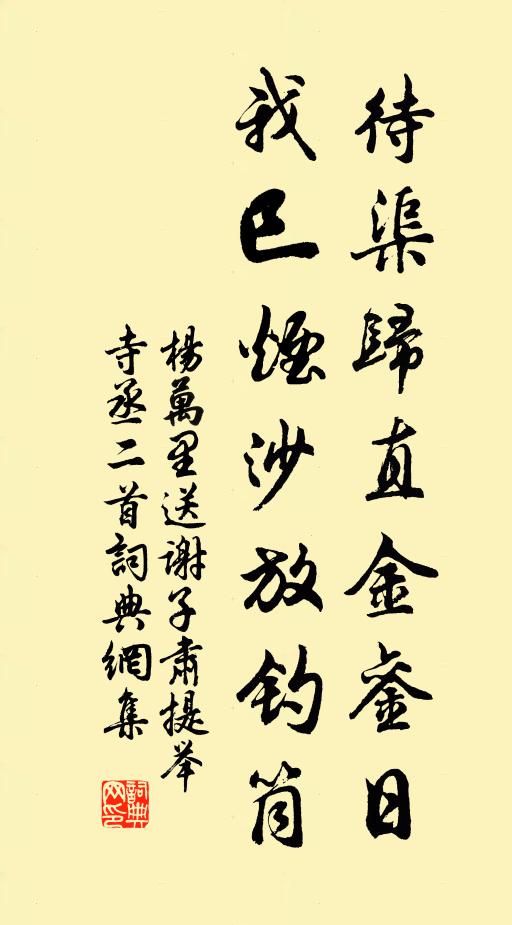 待渠歸直金銮日
我已煙沙放釣筒
楊萬里送謝子肅提举
寺丞二首詞典網集
詞典
网印